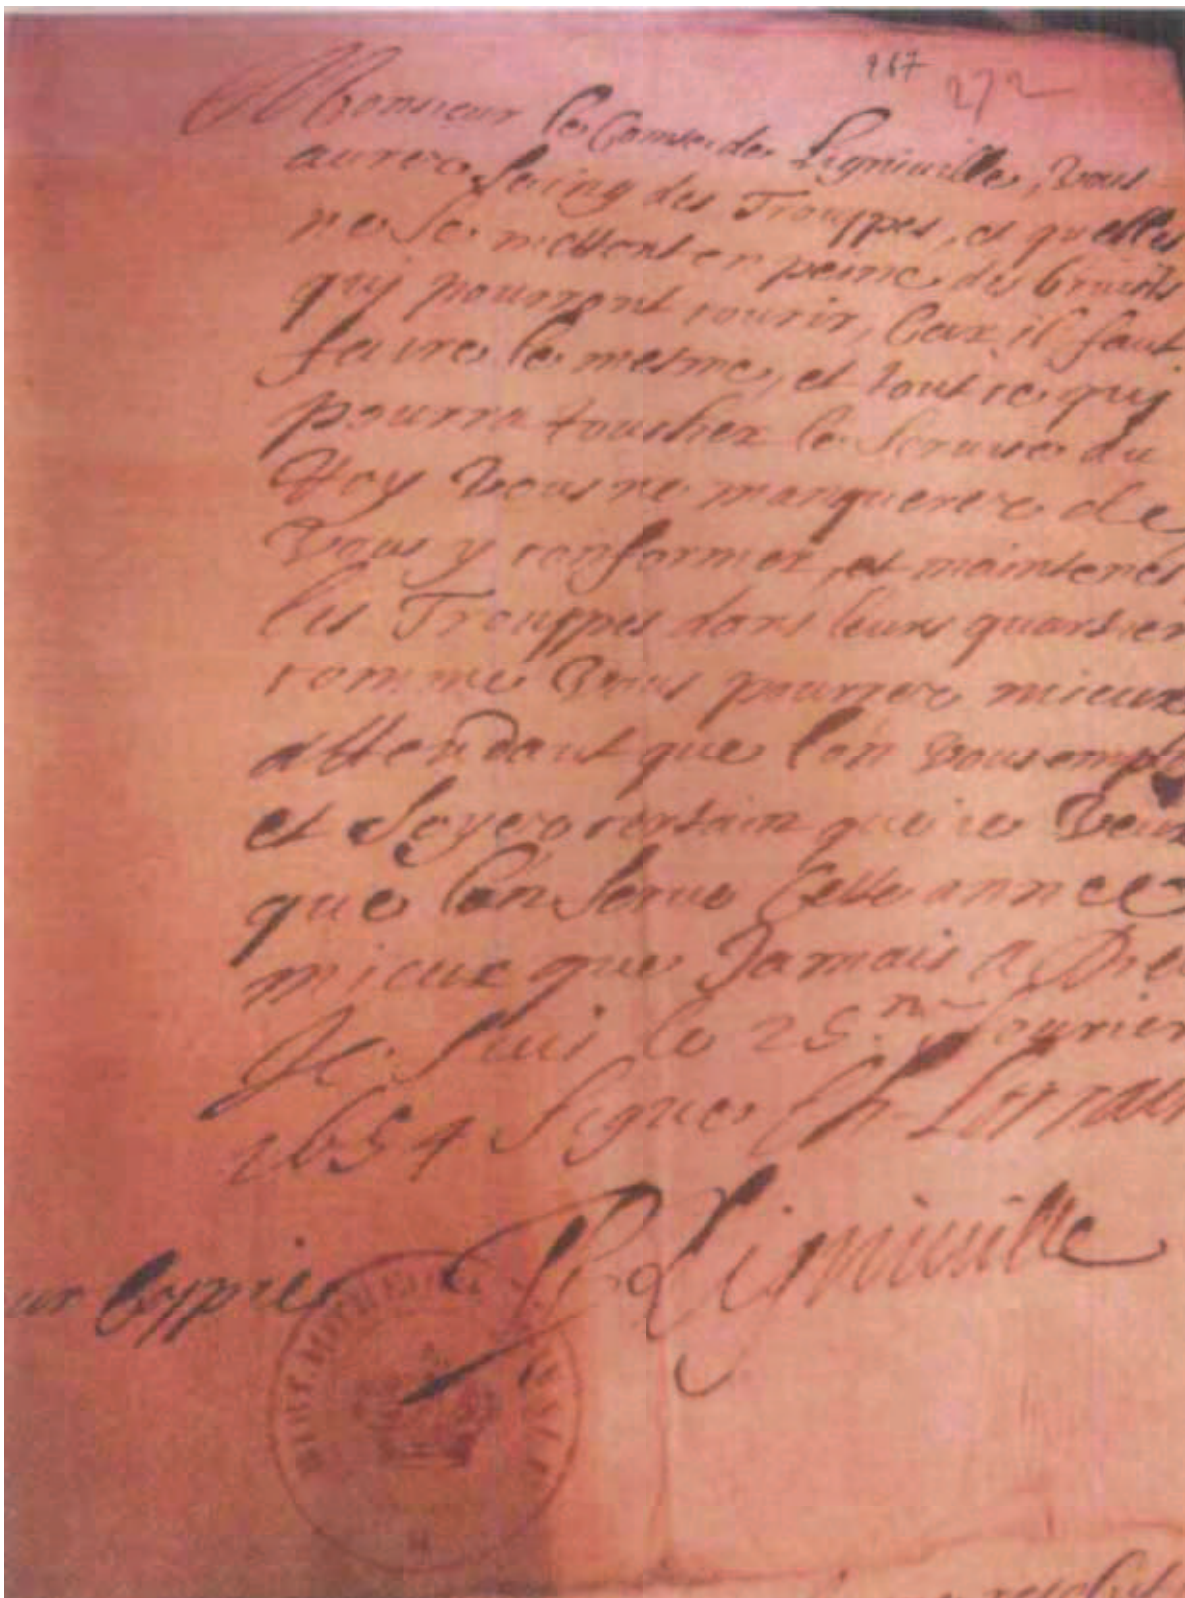 267 272
Monsieur le Comte de Ligniville, vous
aurez soing des Trouppes, et quelles
ne se mettent en peine des bruits
qui pourront courir, Car il faut
faire le mesme, et tout ce qui
pourra toucher le service du
Roy vous ne manquerez de
vous y conformer, et mainteres
les Trouppes dans leurs quartier
comme vous pourrez mieux
attendant que l'on vous
et soyez certain que ie veux
que l'on serve cette année
mieux que Jamais a Dieu
Je suis le 25.me feurier
1654 signe Ch Lorrain
ur Coppie Ligniville
BIBLIOTHECAE